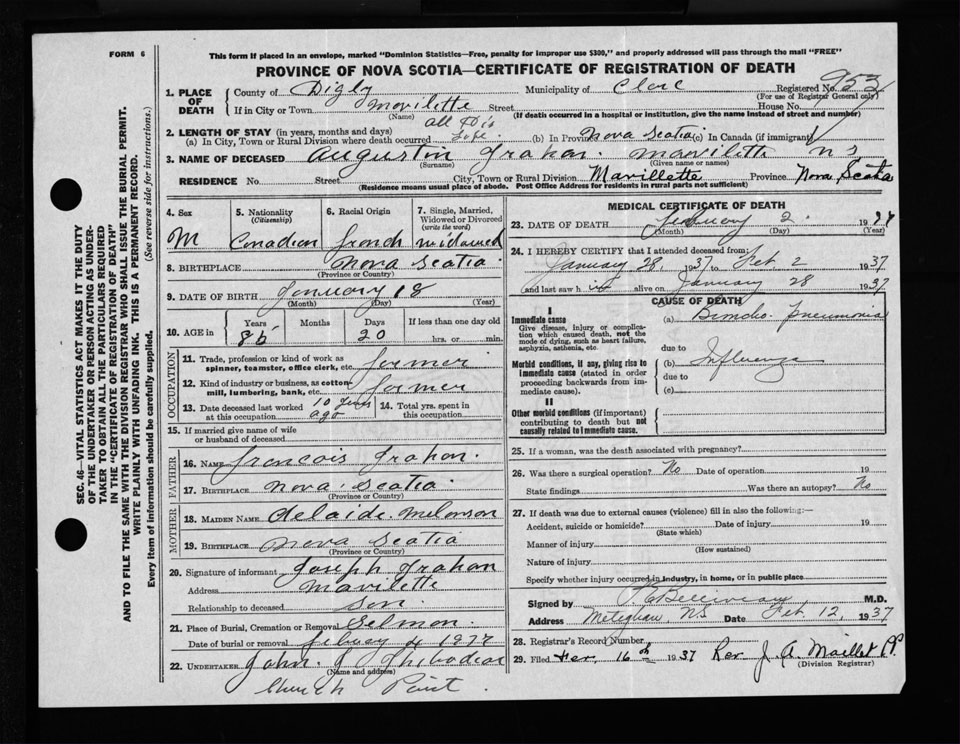 FORM 6
This form if placed in an envelope, marked "Dominion Statistics—Free, penalty for improper use $300," and properly addressed will pass through the mail "FREE"
PROVINCE OF NOVA SCOTIA—CERTIFICATE OF REGISTRATION OF DEATH
SEC. 46—VITAL STATISTICS ACT MAKES IT THE DUTY
OF THE UNDERTAKER OR PERSON ACTING AS UNDER-
TAKER TO OBTAIN ALL THE PARTICULARS REQUIRED
IN THE "CERTIFICATE OF REGISTRATION OF DEATH"
AND TO FILE THE SAME WITH THE DIVISION REGISTRAR WHO SHALL ISSUE THE BURIAL PERMIT.
WRITE PLAINLY WITH UNFADING INK. THIS IS A PERMANENT RECORD.
Every item of information should be carefully supplied. (See reverse side for instructions.)
1. PLACE OF DEATH County of Digby Municipality of Clare Registered No. 953
(For use of Registrar General only)
If in City or Town Mavilette Street House No.
(Name) (If death occurred in a hospital or institution, give the name instead of street and number)
2. LENGTH OF STAY (in years, months and days) all his
(a) In City, Town or Rural Division where death occurred life (b) In Province Nova Scotia (c) In Canada (if immigrant)
3. NAME OF DECEASED Augustin Frahan. Mavilette N S
(Surname) (Given name or names)
RESIDENCE No. Street City, Town or Rural Division Mavillette Province Nova Scotia
(Residence means usual place of abode. Post Office Address for residents in rural parts not sufficient)
4. Sex 5. Nationality (Citizenship) 6. Racial Origin 7. Single, Married, Widowed or Divorced (write the word)
M Canadian french widowed
8. BIRTHPLACE Nova Scotia
(Province or Country)
9. DATE OF BIRTH January 18
(Month) (Day) (Year)
10. AGE in Years Months Days If less than one day old
86 20 hrs. or min.
OCCUPATION
11. Trade, profession or kind of work as spinner, teamster, office clerk, etc. farmer
12. Kind of industry or business, as cotton mill, lumbering, bank, etc. farmer
13. Date deceased last worked at this occupation 10 years ago 14. Total yrs. spent in this occupation
15. If married give name of wife or husband of deceased
FATHER
16. NAME francois Frahan.
17. BIRTHPLACE Nova Scotia
(Province or Country)
MOTHER
18. MAIDEN NAME Adelaide. Melonson
19. BIRTHPLACE Nova Scotia
(Province or Country)
20. Signature of informant Joseph Frahan
Address Mavilette
Relationship to deceased son.
21. Place of Burial, Cremation or Removal Selmon.
Date of burial or removal febuary 4 1937
22. UNDERTAKER John. J Thibodeau
(Name and address)
Church Point.
MEDICAL CERTIFICATE OF DEATH
23. DATE OF DEATH february 2. 1937
(Month) (Day) (Year)
24. I HEREBY CERTIFY that I attended deceased from:
January 28, 1937 to Feb 2 1937
and last saw h im alive on January 28 1937
CAUSE OF DEATH
I
Immediate cause (a) Broncho. Pneumonia
Give disease, injury or complication which caused death, not the mode of dying, such as heart failure, asphyxia, asthenia, etc.
due to
Morbid conditions, if any, giving rise to immediate cause (stated in order proceeding backwards from immediate cause). (b) Influenza
due to
(c)
II
Other morbid conditions (if important) contributing to death but not causally related to immediate cause.
25. If a woman, was the death associated with pregnancy?
26. Was there a surgical operation? No Date of operation 19
State findings Was there an autopsy? No
27. If death was due to external causes (violence) fill in also the following:—
Accident, suicide or homicide? Date of injury 19
(State which)
Manner of injury
(How sustained)
Nature of injury
Specify whether injury occurred in industry, in home, or in public place
Signed by Belliveau M.D.
Address Meteghan N.S Date Feb 12, 1937
28. Registrar's Record Number
29. Filed Fev. 16th 1937 Rev. J. A. Maillet
(Division Registrar)